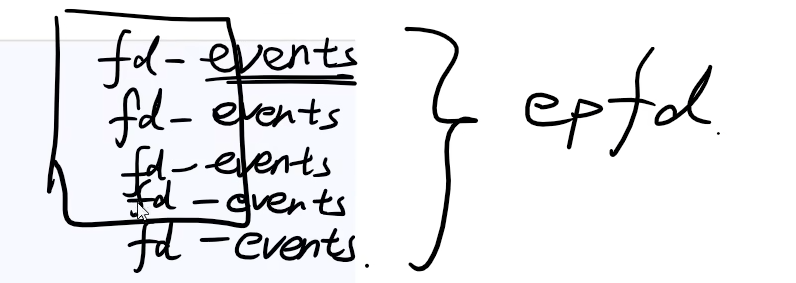 fd - events
fd - events
fd - events
fd - events
fd - events.
epfd.